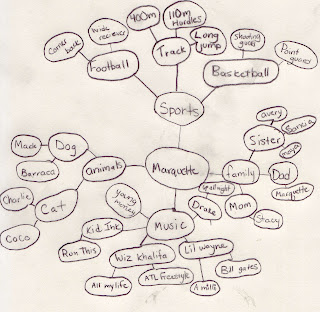 400m
110m
Hurdles
Wide
reciever
Corner
back
Track
Long
jump
Shooting
Point
Football
Basketball
Sports
avery
Sister
maya
Dog
animals
Marquette
family
Dad
Marquette
Charlie
Cat
CoCo
young
money
Drake
Mom
Stacy
Music
Kid Ink
Run This
Wiz Khalifa
Lil wayne
Bill gates
All my life
ATL Freestyle
A milli